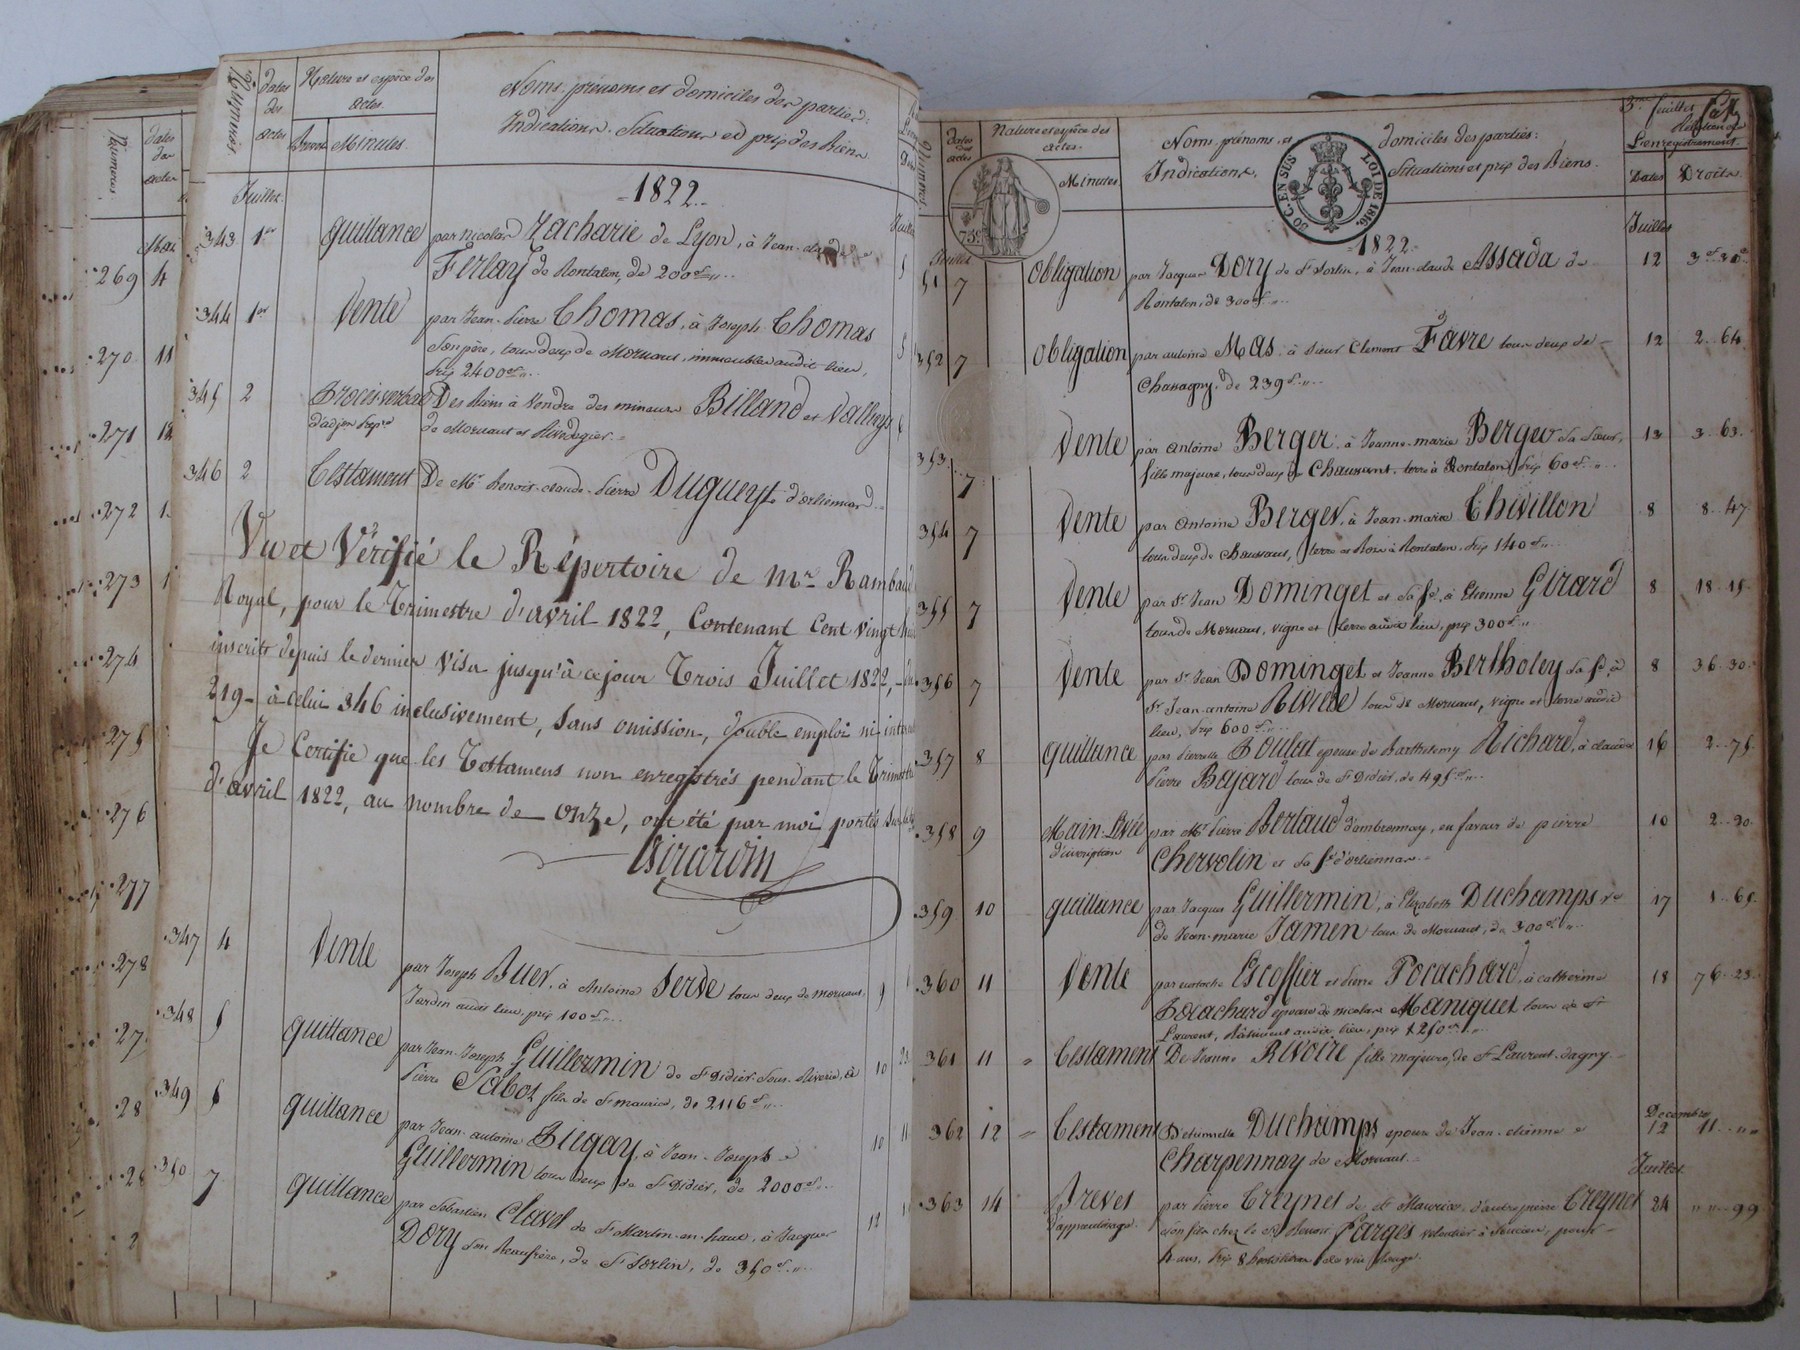 Numéros
dates des actes
Numéros
dates des actes
Nature et espèce des actes.
Brevets Minutes.
Noms, prénoms et domiciles des parties:
Indications, Situations et prix des Biens
Mai
269 4
270 11
271 12
272
273
274
275
276
277
278
Juillet
1822
343 1er quittance par Nicolas Zacharie de Lyon, à Jean
Ferlay de Rontalon, de 200f
344 1er Vente par Jean-Pierre Thomas, à Joseph Thomas
Son père, tous deux de Mornant, immeubles audit lieu,
prix 2400f
345 2 Procès verbal Des Biens à vendre des mineurs Billand et Vallery
d'adjon prépre de Mornant et Rivedegier
346 2 Testament De Mr Benoit-claude-Pierre Duguey d'orlienas
Vu et Vérifié le Répertoire de mr Rambaud
Royal, pour le Trimestre d'avril 1822, Contenant Cent vingt huit
inscrits depuis le dernier visa jusqu'à ce jour Trois Juillet 1822,
219 à celui 346 inclusivement, sans omission, double emploi ni
Je Certifie que les Testamens non enregistrés pendant le Trimestre
d'avril 1822, au nombre de onze, ont été par moi portés sur
347 4 Vente par Joseph Buer, à Antoine Serve tous deux de mornant,
Jardin audit lieu, prix 100f
348 5 quittance par Jean-Joseph Guillermin de St Didier-Sous-Riverie, à
Pierre Sabot fils de St maurice, de 2116f
349 5 quittance par Jean-antoine Piegay, à Jean-Joseph
Guillermin tous deux de St Didier, de 2000f
350 7 quittance par Sébastien Clavel de St Martin-en-haut, à Jacques
Dory son Beaufrère, de St Sorlin, de 350f
Numéros
dates des actes
Nature et espèce des actes.
Minutes.
Noms, prénoms, et domiciles des parties:
Indications, Situations et prix des Biens.
3me feuillet
Relation de
L'enregistrement.
Dates Droits.
75c
50 C. EN SUS
LOI DE 1816.
Juillet
1822
Juillet
351 7 Obligation par Jacques Dory de St Sorlin, à Jean-claude Assada de 12 3f 30c
Rontalon, de 300f
352 7 Obligation par antoine Mas, à Sieur Clement Favre tous deux de 12 2 64
Chassagny, de 239f
353 7 Vente par antoine Berger, à Jeanne-marie Berger sa Soeur, 13 3 63
fille majeure, tous deux de Chaussant, terre à Rontalon, prix 60f
354 7 Vente par Antoine Berger, à Jean-marie Thivillon 8 8 47
tous deux de Chaussant, terre et Bois à Rontalon, prix 140f
355 7 Vente par Sr Jean Dominget et sa fe, à Etienne Girard 8 18 15
tous de Mornant, vigne et terre audit lieu, prix 300f
356 7 Vente par Sr Jean Dominget et Jeanne Bertholey sa fe à 8 36 30
Sr Jean-antoine Rivière tous de Mornant, vigne et terre audit
lieu, prix 600f
357 8 quittance par Pierrette Boulat epouse de Barthelemy Richard, à claude 16 2 75
Pierre Bajard tous de St Didier, de 495f
358 9 Main-Levée par Mr Pierre Bertaud d'ambronnay, en faveur de pierre 10 2 20
d'inscription Chervolin et sa fe d'orlienas
359 10 quittance par Jacques Guillermin, à Elizabeth Duchamps ve 17 1 65
de Jean-marie Jamen tous de Mornant, de 300f
360 11 Vente par eustache Escoffier et Pierre Focachard, à catherine 18 76 23
Focachard epouse de nicolas Maniquet tous de St
Laurent, Bâtiment audit lieu, prix 1250f
361 11 Testament De Jeanne Rivoire fille majeure, de St Laurent-dagny
Decembre
362 12 Testament D'etiennette Duchamps epouse de Jean-etienne 12 11
Charpennay de Mornant
Juillet
363 14 Brevet par Pierre Creynet de St Maurice, d'autre pierre Creynet 24 99
d'apprentissage son fils chez le Sr Benoit Farges
ans, prix 8 hectolitres de vin Rouge